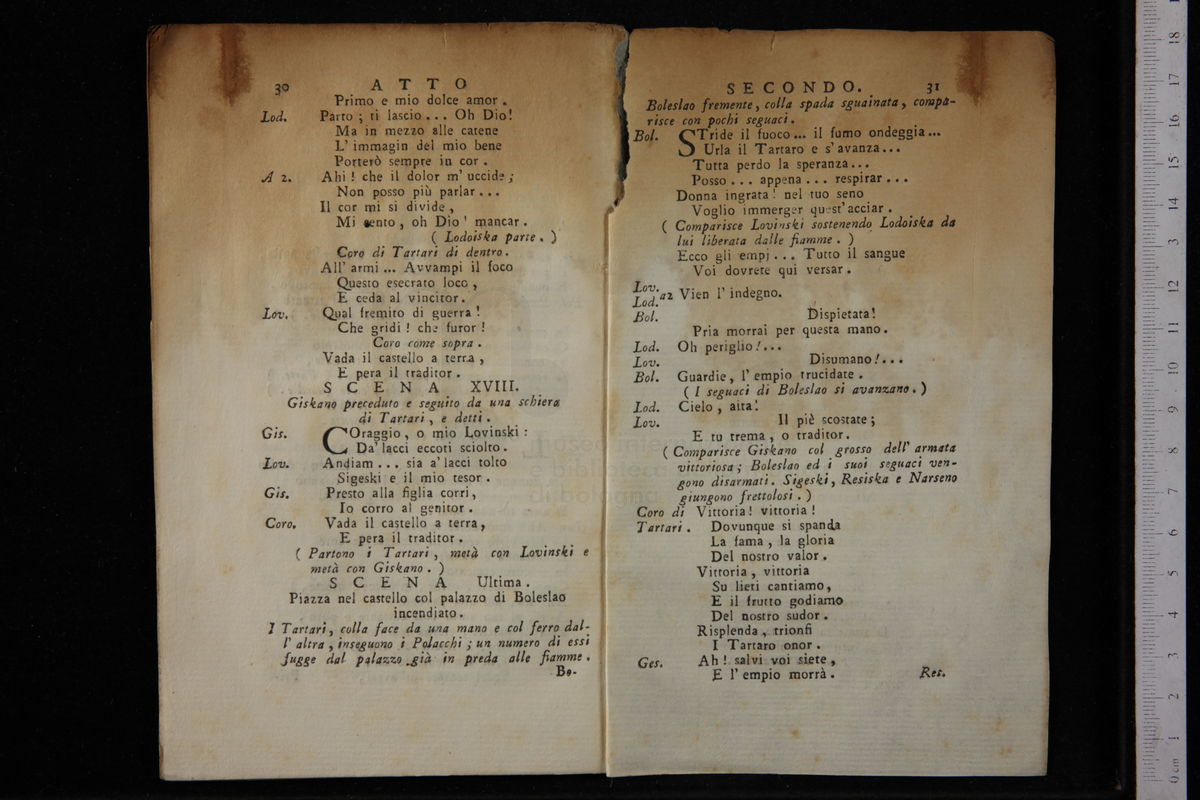 30 ATTO
Primo e mio dolce amor.
Lod. Parto; ti lascio... Oh Dio!
Ma in mezzo alle catene
L' immagin del mio bene
Porterò sempre in cor.
A 2. Ahi! che il dolor m' uccide;
Non posso più parlar...
Il cor mi si divide,
Mi sento, oh Dio! mancar.
( Lodoiska parte. )
Coro di Tartari di dentro.
All' armi... Avvampi il foco
Questo esecrato loco,
E ceda al vincitor.
Lov. Qual fremito di guerra!
Che gridi! che furor!
Coro come sopra.
Vada il castello a terra,
E pera il traditor.
SCENA XVIII.
Giskano preceduto e seguito da una schiera
di Tartari, e detti.
Gis. COraggio, o mio Lovinski:
Da' lacci eccoti sciolto.
Lov. Andiam... sia a' lacci tolto
Sigeski e il mio tesor.
Gis. Presto alla figlia corri,
Io corro al genitor.
Coro. Vada il castello a terra,
E pera il traditor.
( Partono i Tartari, metà con Lovinski e
metà con Giskano. )
SCENA Ultima.
Piazza nel castello col palazzo di Boleslao
incendiato.
I Tartari, colla face da una mano e col ferro dal-
l' altra, inseguono i Polacchi; un numero di essi
fugge dal palazzo già in preda alle fiamme.
Bo-
SECONDO. 31
Boleslao fremente, colla spada sguainata, compa-
risce con pochi seguaci.
Bol. STride il fuoco... il fumo ondeggia...
Urla il Tartaro e s' avanza...
Tutta perdo la speranza...
Posso... appena... respirar...
Donna ingrata! nel tuo seno
Voglio immerger quest' acciar.
( Comparisce Lovinski sostenendo Lodoiska da
lui liberata dalle fiamme. )
Ecco gli empj... Tutto il sangue
Voi dovrete quì versar.
Lov.
Lod. a2 Vien l' indegno.
Bol. Dispietata!
Pria morrai per questa mano.
Lod. Oh periglio!...
Lov. Disumano!...
Bol. Guardie, l' empio trucidate.
( I seguaci di Boleslao si avanzano. )
Lod. Cielo, aita!
Lov. Il piè scostate;
E tu trema, o traditor.
( Comparisce Giskano col grosso dell' armata
vittoriosa; Boleslao ed i suoi seguaci ven-
gono disarmati. Sigeski, Resiska e Narseno
giungono frettolosi. )
Coro di Vittoria! vittoria!
Tartari. Dovunque si spanda
La fama, la gloria
Del nostro valor.
Vittoria, vittoria
Su lieti cantiamo,
E il frutto godiamo
Del nostro sudor.
Risplenda, trionfi
I Tartaro onor.
Ges. Ah! salvi voi siete,
E l' empio morrà.
Res.
museo inter
biblioteca
di bologna
0 cm 1 2 3 4 5 6 7 8 9 10 11 12 3 14 15 16 17 18